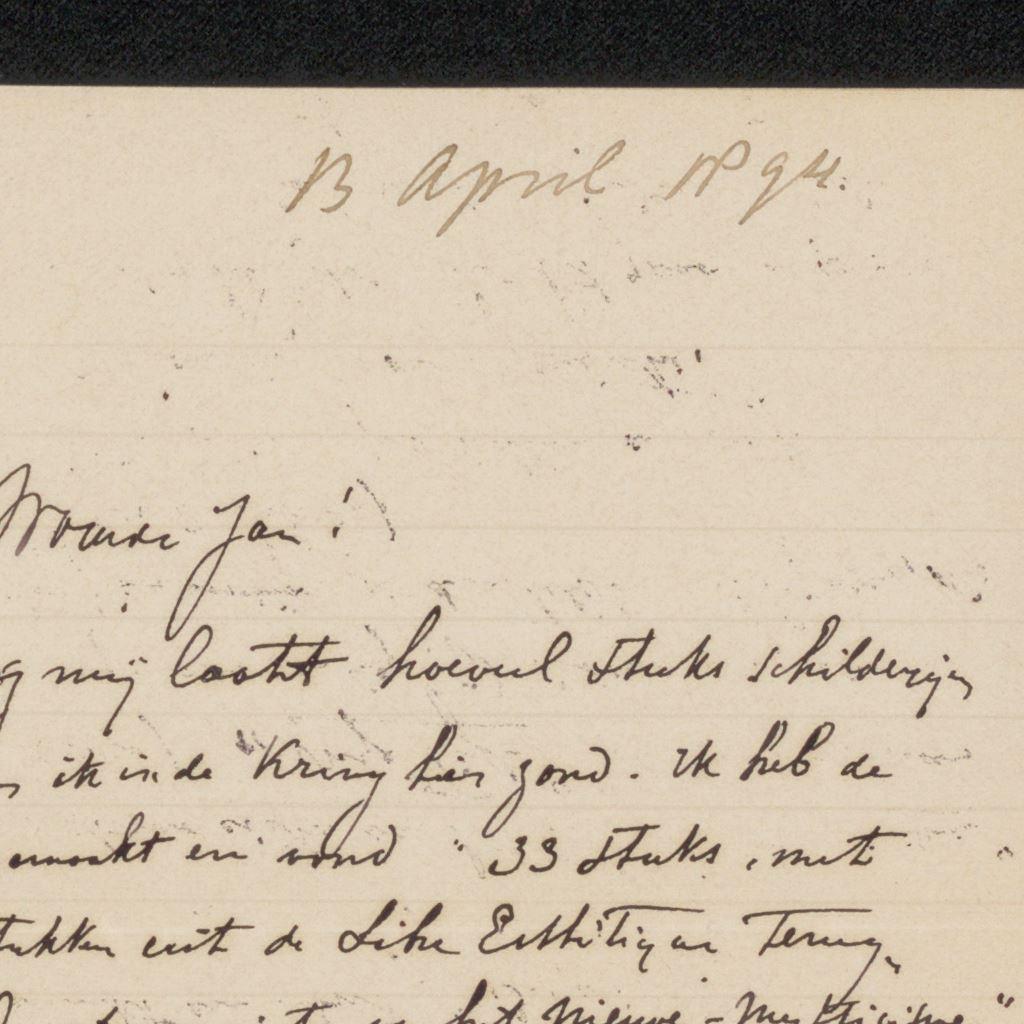 13 April 1894.
Waarde Jan!
mij laatst hoeveel stuks schilderijen
ik in de Kring hier zond. Ik heb de
en vond 33 stuks, met
uit de Libre Esthétique terug,
het nieuwe - mysticisme"